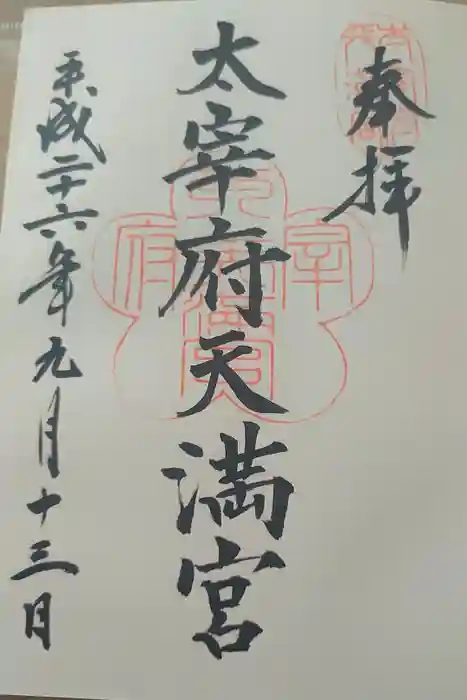 奉拝
太宰府天満宮
平成二十六年九月十三日